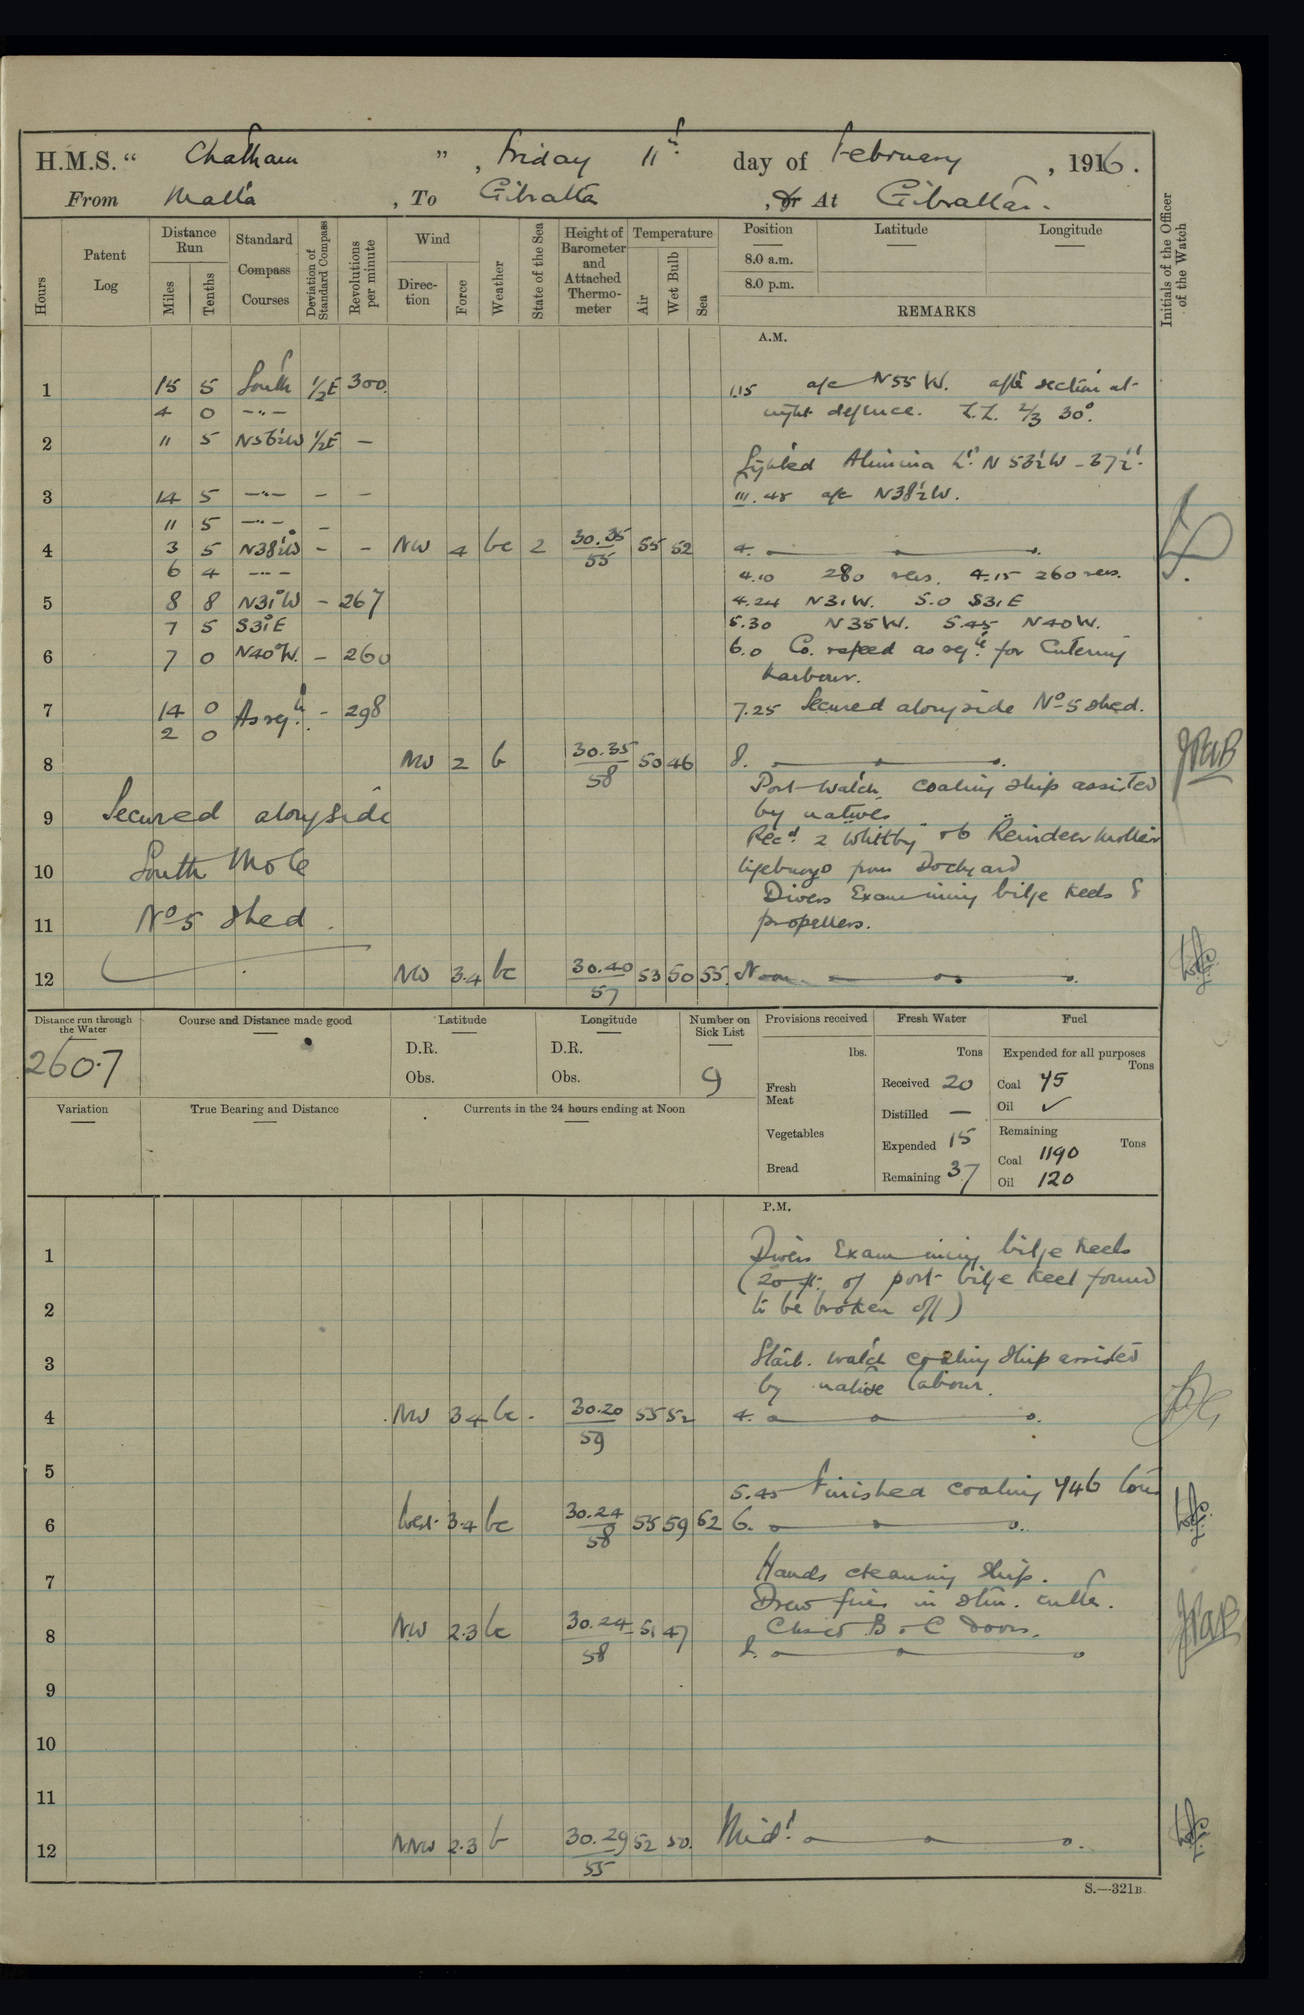 H.M.S. "Chatham", Friday 11th day of February, 1916.
From Malta, To Gibraltar, or At Gibraltar.
Hours
Patent Log
Distance Run
Miles
Tenths
Standard Compass Courses
Deviation of Standard Compass
Revolutions per minute
Wind
Direction
Force
Weather
State of the Sea
Height of Barometer and Attached Thermometer
Temperature
Air
Wet Bulb
Sea
Position
Latitude
Longitude
8.0 a.m.
8.0 p.m.
REMARKS
Initials of the Officer of the Watch
A.M.
1 15 5 South ½E 300. 1.15 a/c N55W. after section at
4 0 -"- night defence. Z.Z. 2/3 30°.
2 11 5 N56½W ½E -
Sighted Alminina Lt. N53½W - 37½'.
3 14 5 -"- - - III.48 a/c N38½W.
11 5 -"- -
4 3 5 N38½°W - - NW 4 bc 2 30.35/55 55 52 4.
6 4 -"- 4.10 280 revs. 4.15 260 revs.
5 8 8 N31°W - 267 4.24 N31W. 5.0 S31E
7 5 S31°E 5.30 N35W. 5.45 N40W.
6 7 0 N40°W. - 260 6.0 Co. & speed as reqte for Entering
harbour.
7 14 0 As reqte. - 298 7.25 Secured alongside No 5 shed.
2 0
8 NW 2 b 30.35/58 50 46 8.
Port Watch coaling ship assisted
9 Secured alongside by natives
Recd. 2 Whittby & 6 Reindeer
10 South Mole lifebuoys from Dockyard
Divers Examining bilge keels &
11 No 5 shed. propellers.
12 NW 3.4 bc 30.40/57 53 50 55. Noon
Distance run through the Water
260.7
Course and Distance made good
Latitude
D.R.
Obs.
Longitude
D.R.
Obs.
Number on Sick List
9
Variation
True Bearing and Distance
Currents in the 24 hours ending at Noon
Provisions received
lbs.
Fresh Meat
Vegetables
Bread
Fresh Water
Tons
Received 20
Distilled —
Expended 15
Remaining 37
Fuel
Expended for all purposes
Tons
Coal 45
Oil ✓
Remaining
Tons
Coal 1190
Oil 120
P.M.
1 Divers Examining bilge keels
(20 ft. of port bilge keel found
2 to be broken off)
3 Starb. watch coaling ship assisted
by native labour.
4 NW 3.4 bc 30.20/59 55 52 4.
5
5.45 Finished coaling 746 tons
6 West 3.4 bc 30.24/58 55 59 62 6.
7 Hands cleaning ship.
Drew fires in stm. cutter.
8 NW 2.3 bc 30.24/58 51 47 Closed B & C doors.
8.
9
10
11
12 NNW 2.3 b 30.29/55 52 50. Midt.
S.—321B.